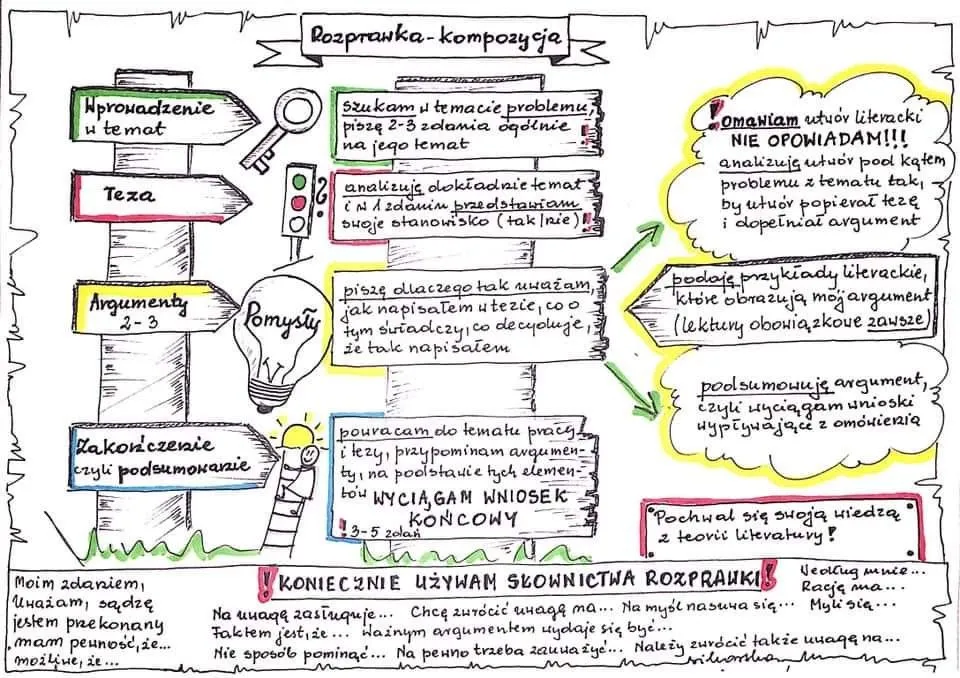 Rozprawka-kompozycja
Wprowadzenie
w temat
szukam w temacie problemu,
piszę 2-3 zdania ogólnie
na jego temat !
Teza
?
analizuję dokładnie temat
i w 1 zdaniu przedstawiam
swoje stanowisko (tak/nie) !
Argumenty
2-3
Pomysły
piszę dlaczego tak uważam,
jak napisałem w tezie, co o
tym świadczy, co decyduje,
że tak napisałem
! omawiam utwór literacki
NIE OPOWIADAM!!!
analizuję utwór pod kątem
problemu z tematu tak,
by utwór popierał tezę
i dopełniał argument
podaję przykłady literackie,
które obrazują mój argument
(lektury obowiązkowe zawsze)
podsumowuję argument,
czyli wyciągam wnioski
wypływające z omówienia
Zakończenie
czyli podsumowanie
powracam do tematu pracy
i tezy, przypominam argumen-
ty, na podstawie tych elemen-
tów WYCIĄGAM WNIOSEK
KOŃCOWY
! 3-5 zdań
Pochwal się swoją wiedzą
z teorii literatury!
! KONIECZNIE UŻYWAM SŁOWNICTWA ROZPRAWKI !
Moim zdaniem,
Uważam, sądzę
jestem przekonany
mam pewność, że...
możliwe, że...
Na uwagę zasługuje... Chcę zwrócić uwagę na... Na myśl nasuwa się...
Faktem jest, że... ważnym argumentem wydaje się być...
Nie sposób pominąć... Na pewno trzeba zauważyć... Należy zwrócić także uwagę na...
Według mnie...
Rację ma...
Myli się...